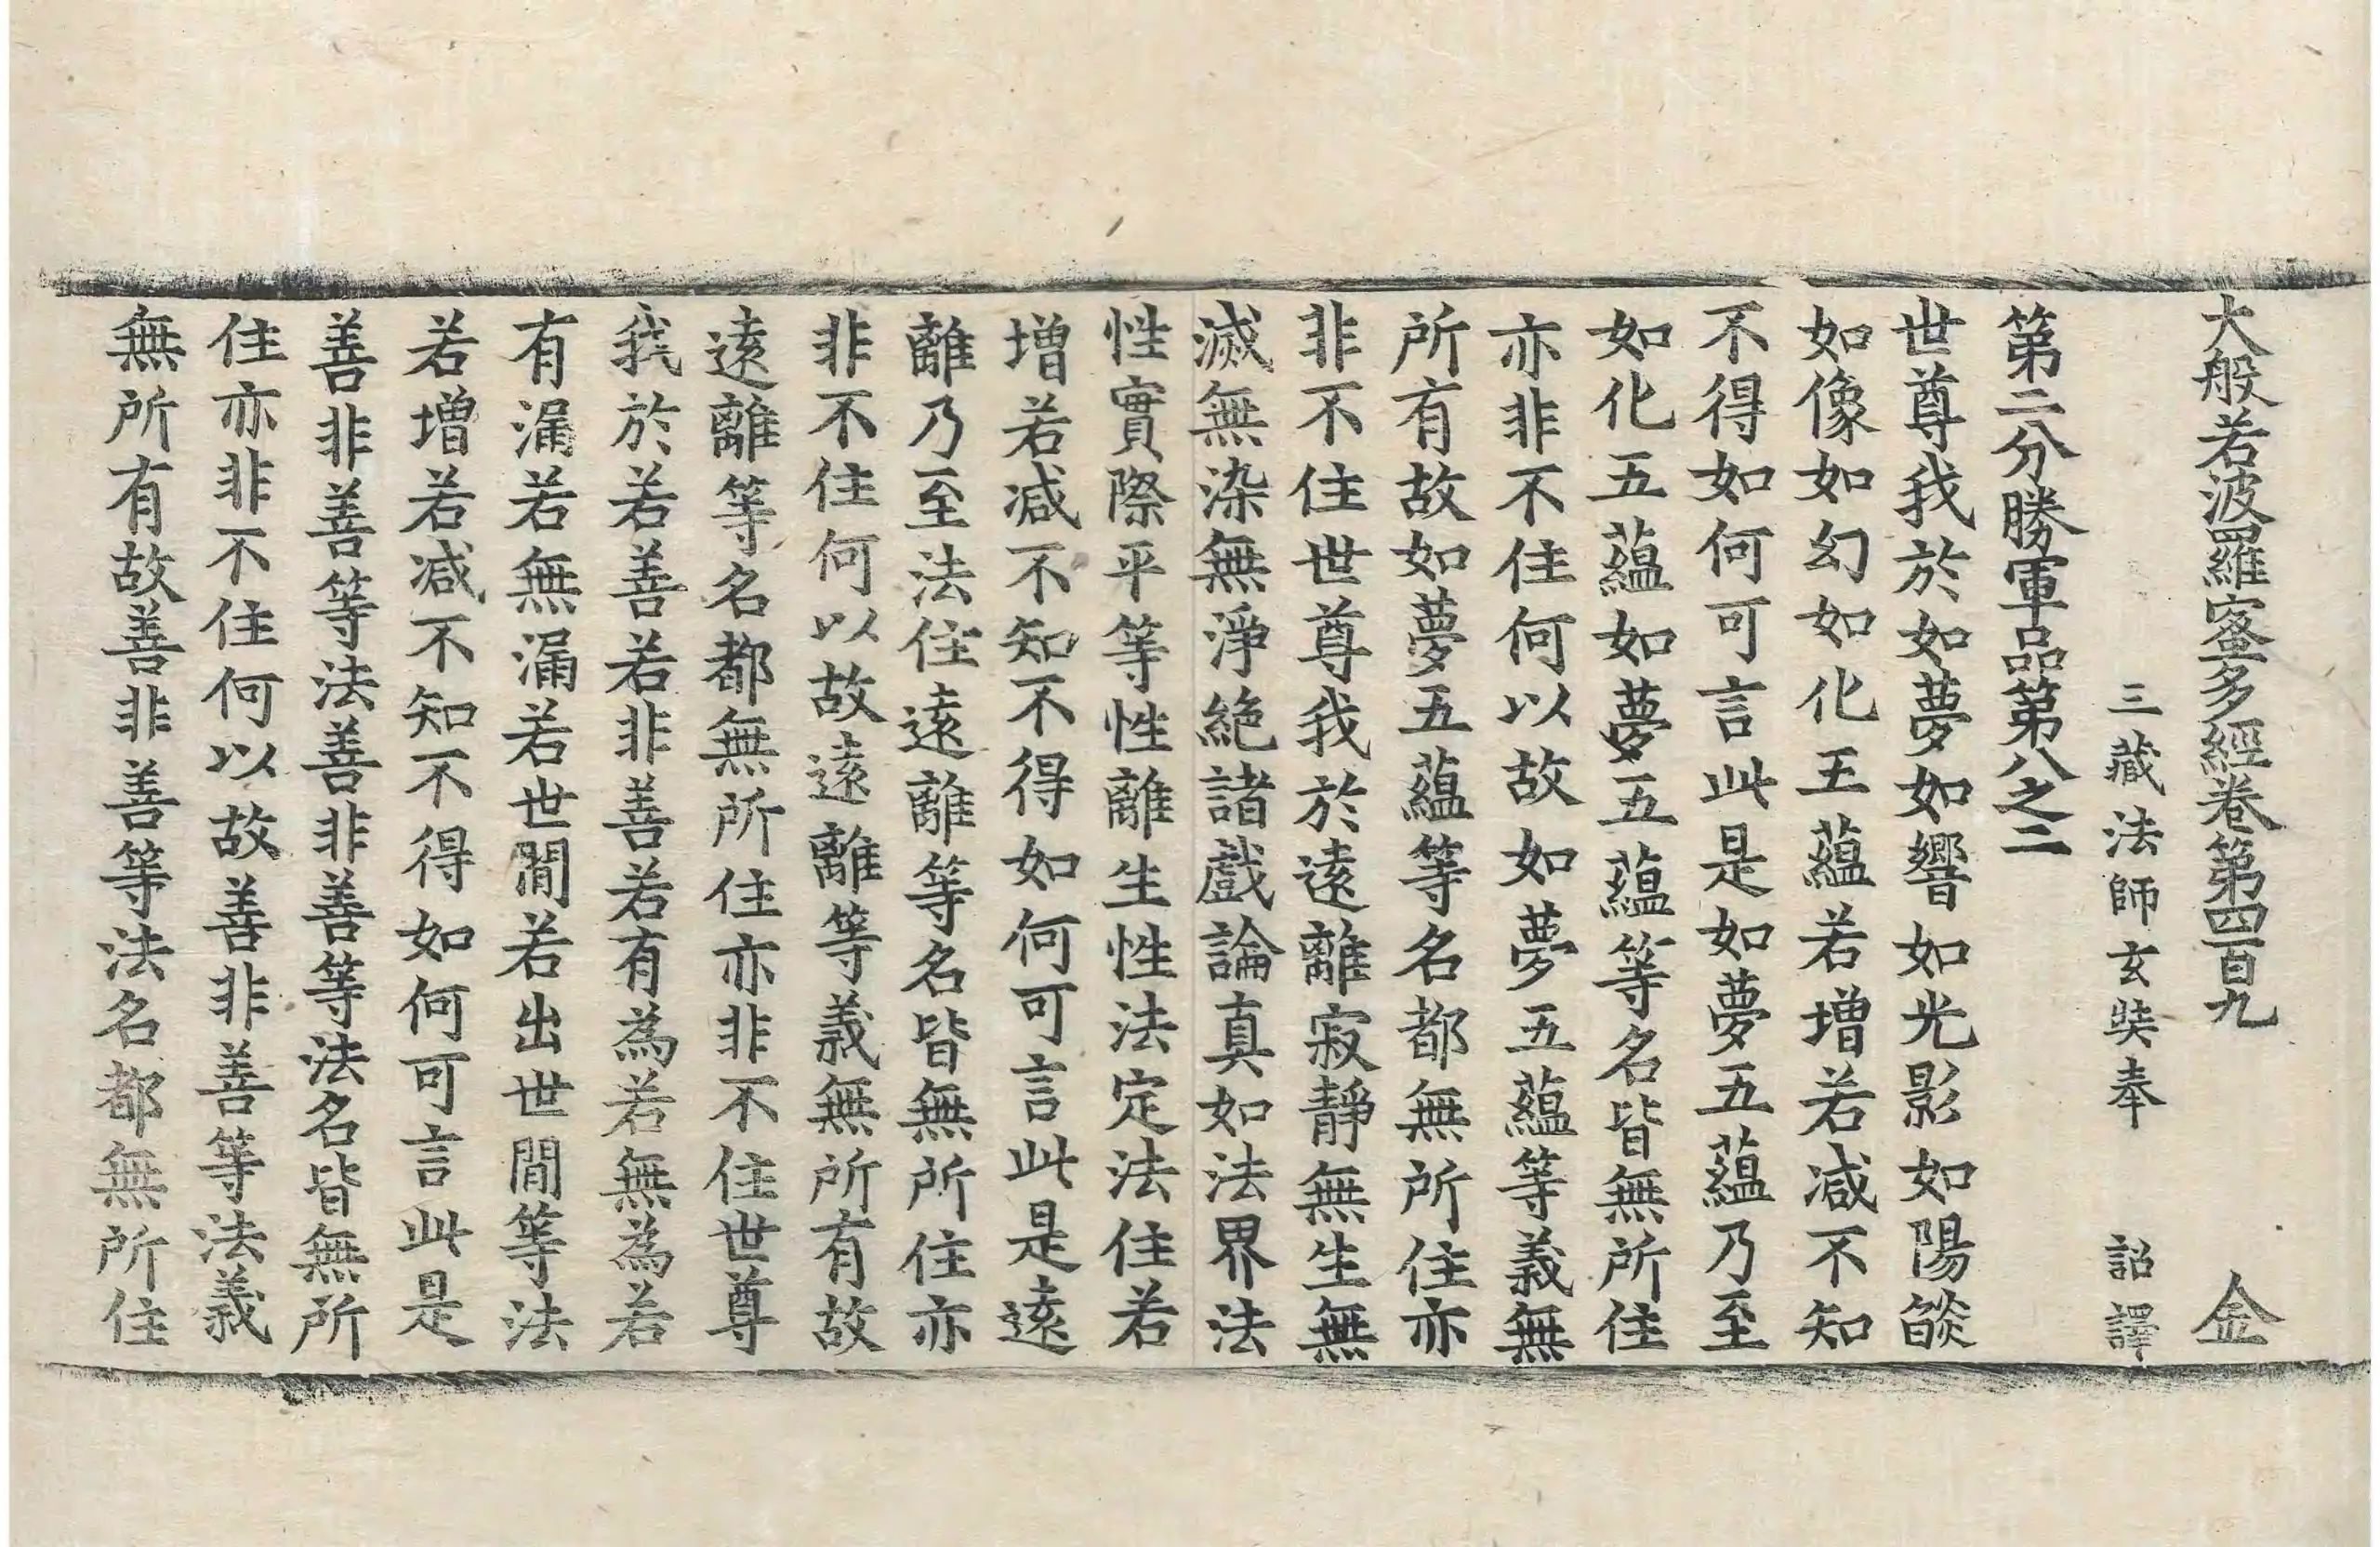 大般若波羅蜜多經卷第四百九 金
三藏法師玄奘奉 詔譯
第二分勝軍品第八之二
世尊我於如夢如響如光影如陽燄
如像如幻如化王蘊若增若減不知
不得如何可言此是如夢五蘊乃至
如化五蘊如夢五蘊等名皆無所住
亦非不住何以故如夢五蘊等義無
所有故如夢五蘊等名都無所住亦
非不住世尊我於遠離寂靜無生無
滅無染無淨絶諸戲論真如法界法
性實際平等性離生性法定法住若
增若減不知不得如何可言此是遠
離乃至法住遠離等名皆無所住亦
非不住何以故遠離等義無所有故
遠離等名都無所住亦非不住世尊
我於若善若非善若有為若無為若
有漏若無漏若世間若出世間等法
若增若減不知不得如何可言此是
善非善等法善非善等法名皆無所
住亦非不住何以故善非善等法義
無所有故善非善等法名都無所住